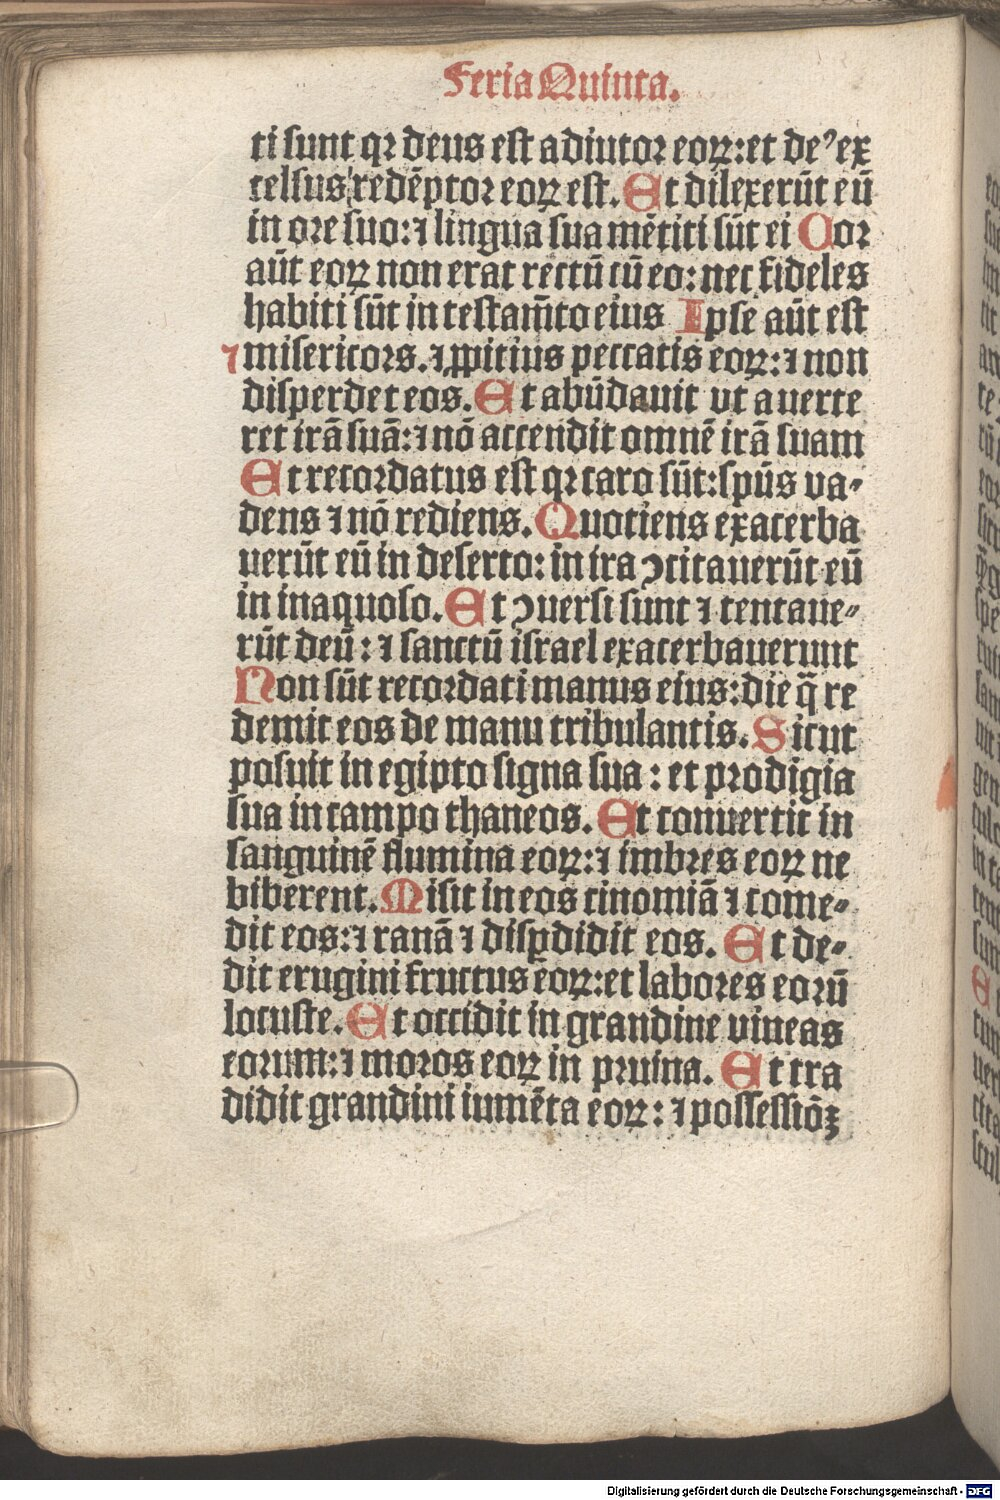 Feria Quinta.
ti sunt qꝛ deus est adiutoꝛ eoꝝ: et deꝰ ex
celsus redēptoꝛ eoꝝ est. Et dilexerūt eū
in oꝛe suo: ⁊ lingua sua mētiti sūt ei Coꝛ
aūt eoꝝ non erat rectū cū eo: nec fideles
habiti sūt in testam̄to eius Ipse aūt est
⁊ misericoꝛs. ⁊ ꝓpitius peccatis eoꝝ: ⁊ non
disperdet eos. Et abūdauit vt auerte
ret irā suā: ⁊ nō accendit omnē irā suam
Et recoꝛdatus est qꝛ caro sūt: spūs va⸗
dens ⁊ nō rediens. Quotiens exacerba
uerūt eū in deserto: in ira ↄcitauerūt eū
in inaquoso. Et ↄuersi sunt ⁊ tentaue⸗
rūt deū: ⁊ sanctū israel exacerbauerunt
Non sūt recoꝛdati manus eius: die q̄ re
demit eos de manu tribulantis. Sicut
posuit in egipto signa sua: et pꝛodigia
sua in campo thaneos. Et conuertit in
sanguinē flumina eoꝝ: ⁊ imbꝛes eoꝝ ne
biberent. Misit in eos cinomiā ⁊ come⸗
dit eos: ⁊ ranā ⁊ disꝑdidit eos. Et de⸗
dit erugini fructus eoꝝ: et laboꝛes eoꝛū
locuste. Et occidit in grandine vineas
eoꝛum: ⁊ moꝛos eoꝝ in pruina. Et tra
didit grandini iumēta eoꝝ: ⁊ possessiōꝫ
Digitalisierung gefördert durch die Deutsche Forschungsgemeinschaft - DFG